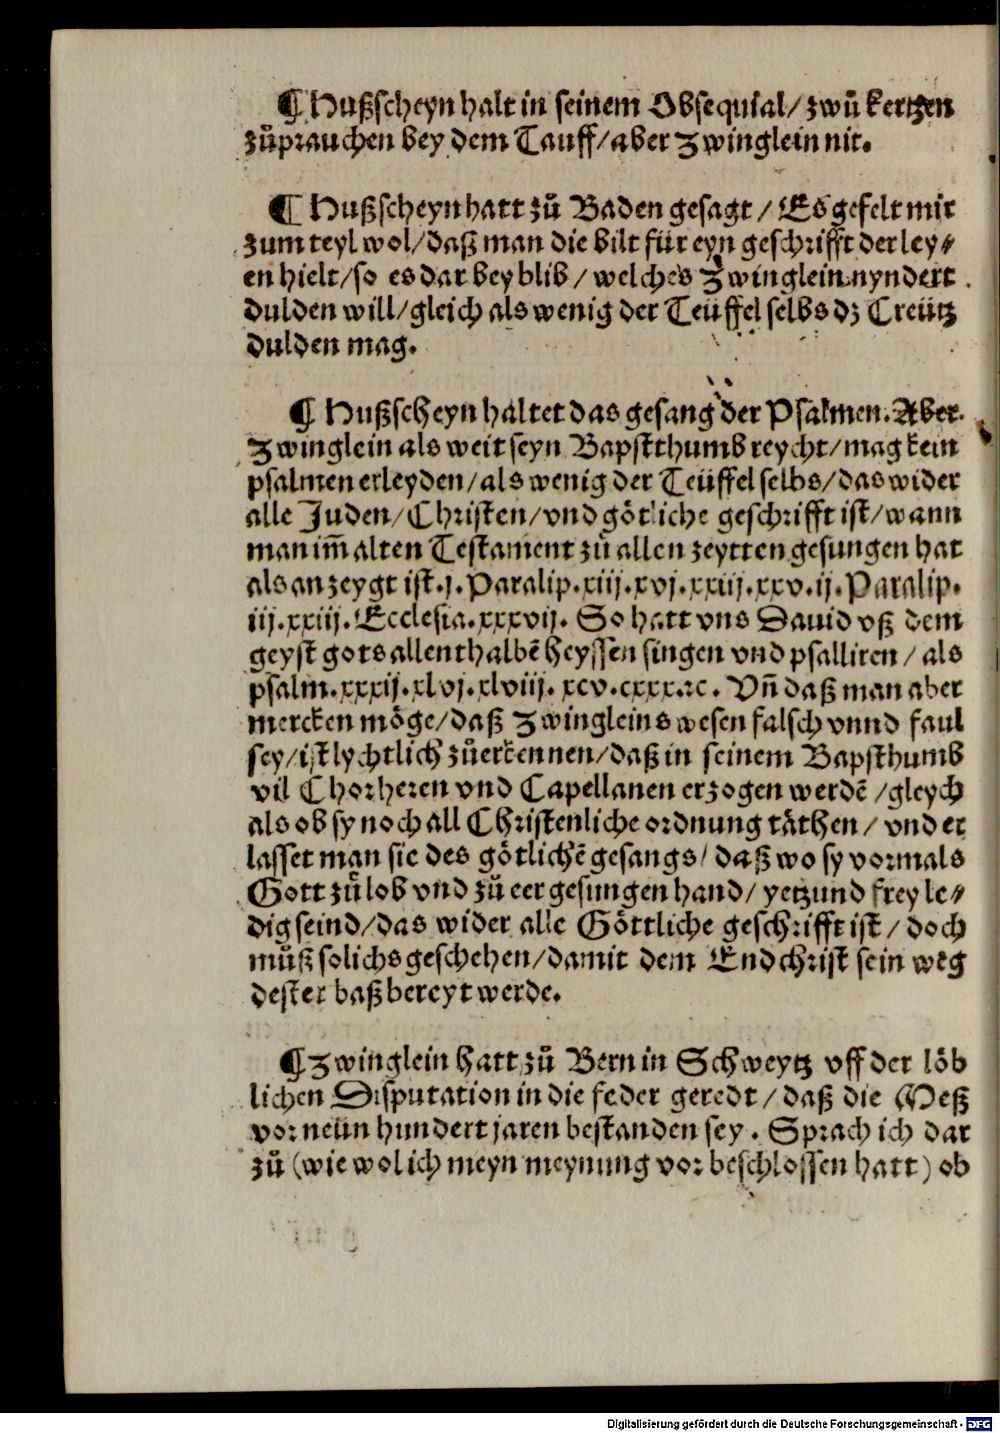 ¶ Hußscheyn halt in seinem Obsequial/ zwů kertzen
zůprauchen bey dem Tauff/ aber Zwinglein nit.
¶ Hußscheyn hatt zů Baden gesagt / Es gefelt mir
zum teyl wol/ daß man die bilt für eyn geschrifft der ley⸗
en hielt/ so es dar bey blib / welches Zwinglein nyndert
dulden will/ gleich als wenig der Teüffel selbs dz Creütz
dulden mag.
¶ Hußscheyn haltet das gesang der Psalmen. Aber
Zwinglein als weit seyn Bapstthumb reycht/ mag kein
psalmen erleyden/ als wenig der Teüffel selbs/ das wider
alle Juden/ Christen/ vnd götliche geschrifft ist/ wann
man im̄ alten Testament zů allen zeytten gesungen hat
als anzeygt ist.j. Paralip.xiij.xvj.xxiij.xxv.ij.Paralip.
iij.xxiij. Ecclesia.xxxvij. So hatt vns Dauid vß dem
geyst gots allenthalbē heyssen singen vnd psalliren / als
psalm.xxxij.xlvj.xlviij. xcv.cxxx.ꝛc. Vn̄ daß man aber
mercken möge/ daß Zwingleins wesen falsch vnnd faul
sey/ ist lychtlich zůerkennen/ daß in seinem Bapsthumb
vil Chorheren vnd Capellanen erzogen werdē /gleych
als ob sy noch all Christenliche ordnung täthen / vnd er
lasset man sie des götlichē gesangs/ daß wo sy vormals
Gott zů lob vnd zů eer gesungen hand/ yetzund frey le⸗
dig seind/ das wider alle Göttliche geschrifft ist / doch
můß solichs geschehen/ damit dem Endchrist sein weg
dester baß bereyt werde.
¶ Zwinglein hatt zů Bern in Schweytz vff der löb
lichen Disputation in die feder geredt / daß die Meß
vor neün hundert jaren bestanden sey . Sprach ich dar
zů (wie wol ich meyn meynung vor beschlossen hatt) ob
Digitalisierung gefördert durch die Deutsche Forschungsgemeinschaft - DFG